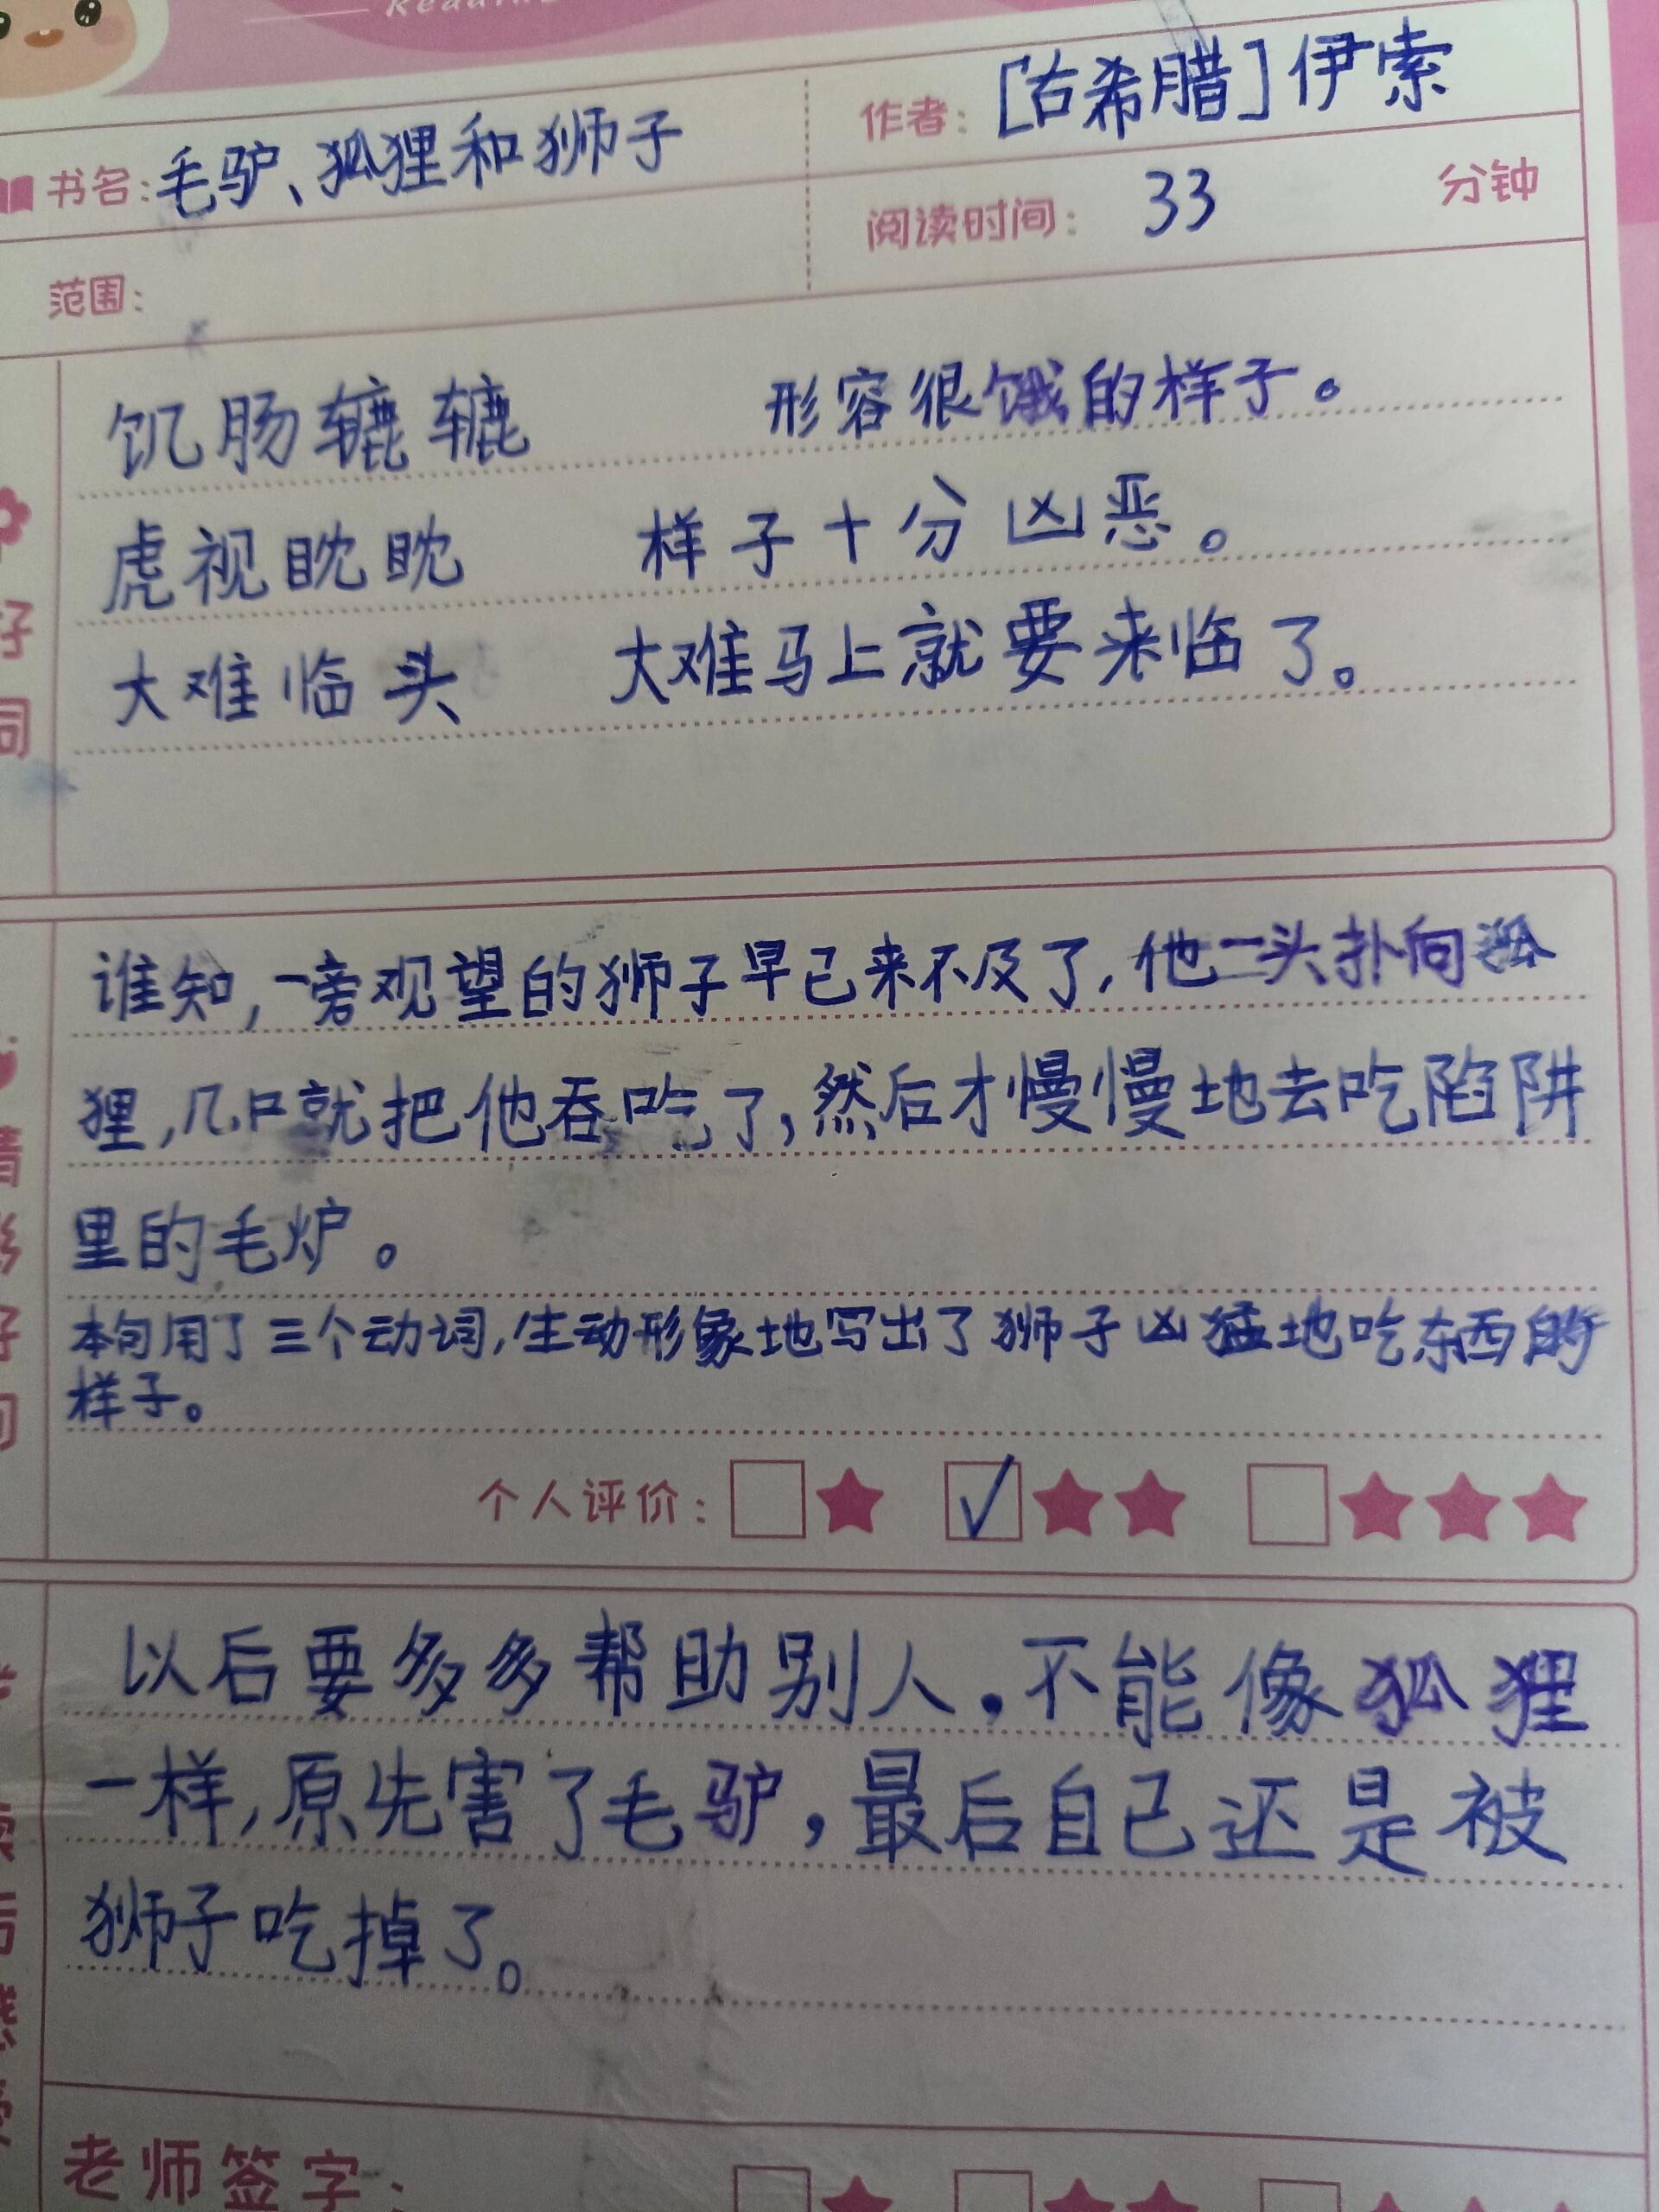 Reading
书名：毛驴、狐狸和狮子
作者：［古希腊］伊索
阅读时间： 33 分钟
范围：
好词
饥肠辘辘 形容很饿的样子。
虎视眈眈 样子十分凶恶。
大难临头 大难马上就要来临了。
精彩好句
谁知，一旁观望的狮子早已来不及了，他一头扑向狐
狸，几口就把他吞吃了，然后才慢慢地去吃陷阱
里的毛炉。
本句用了三个动词，生动形象地写出了狮子凶猛地吃东西的
样子。
个人评价：
以后要多多帮助别人，不能像狐狸
一样，原先害了毛驴，最后自己还是被
狮子吃掉了。
老师签字：